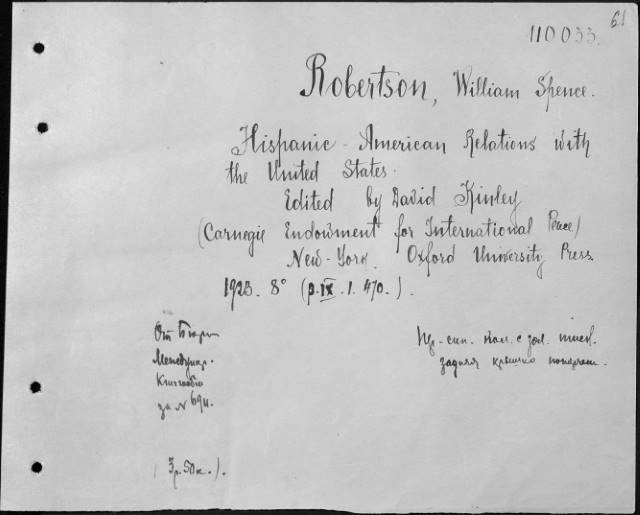 61
110033.
Robertson, William Spence.
Hispanic-American Relations with
the United States.
Edited by David Kinley
(Carnegie Endowment for International Peace)
New-York. Oxford University Press
1923. 8° (p. IX. 1. 470.).
От Бюро
Междунар.
Книгообм
за №
задняя крышка
(3р.50к.).